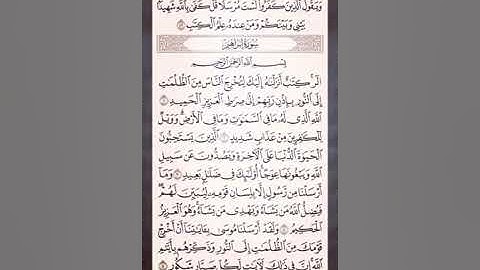 وَيَقُولُ ٱلَّذِينَ كَفَرُوا۟ لَسْتَ مُرْسَلًا قُلْ كَفَىٰ بِٱللَّهِ شَهِيدًۢا
بَيْنِى وَبَيْنَكُمْ وَمَنْ عِندَهُۥ عِلْمُ ٱلْكِتَٰبِ ٤٣
سُورَةُ إِبْرَاهِيمَ
بِسْمِ ٱللَّهِ ٱلرَّحْمَٰنِ ٱلرَّحِيمِ
الٓر كِتَٰبٌ أَنزَلْنَٰهُ إِلَيْكَ لِتُخْرِجَ ٱلنَّاسَ مِنَ ٱلظُّلُمَٰتِ
إِلَى ٱلنُّورِ بِإِذْنِ رَبِّهِمْ إِلَىٰ صِرَٰطِ ٱلْعَزِيزِ ٱلْحَمِيدِ ١
ٱللَّهِ ٱلَّذِى لَهُۥ مَا فِى ٱلسَّمَٰوَٰتِ وَمَا فِى ٱلْأَرْضِ وَوَيْلٌ
لِّلْكَٰفِرِينَ مِنْ عَذَابٍ شَدِيدٍ ٢ ٱلَّذِينَ يَسْتَحِبُّونَ
ٱلْحَيَوٰةَ ٱلدُّنْيَا عَلَى ٱلْءَاخِرَةِ وَيَصُدُّونَ عَن سَبِيلِ
ٱللَّهِ وَيَبْغُونَهَا عِوَجًا أُو۟لَٰٓئِكَ فِى ضَلَٰلٍۭ بَعِيدٍ ٣ وَمَآ
أَرْسَلْنَا مِن رَّسُولٍ إِلَّا بِلِسَانِ قَوْمِهِۦ لِيُبَيِّنَ لَهُمْ
فَيُضِلُّ ٱللَّهُ مَن يَشَآءُ وَيَهْدِى مَن يَشَآءُ وَهُوَ ٱلْعَزِيزُ
ٱلْحَكِيمُ ٤ وَلَقَدْ أَرْسَلْنَا مُوسَىٰ بِـَٔايَٰتِنَآ أَنْ أَخْرِجْ
قَوْمَكَ مِنَ ٱلظُّلُمَٰتِ إِلَى ٱلنُّورِ وَذَكِّرْهُم بِأَيَّىٰمِ
ٱللَّهِ إِنَّ فِى ذَٰلِكَ لَءَايَٰتٍ لِّكُلِّ صَبَّارٍ شَكُورٍ ٥